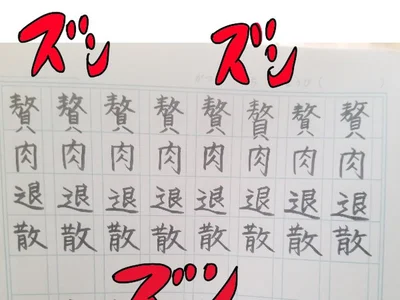 ズシ
ズシ
贅肉退散
贅肉退散
贅肉退散
贅肉退散
贅肉退散
贅肉退散
贅肉退散
贅肉退散
ズシ